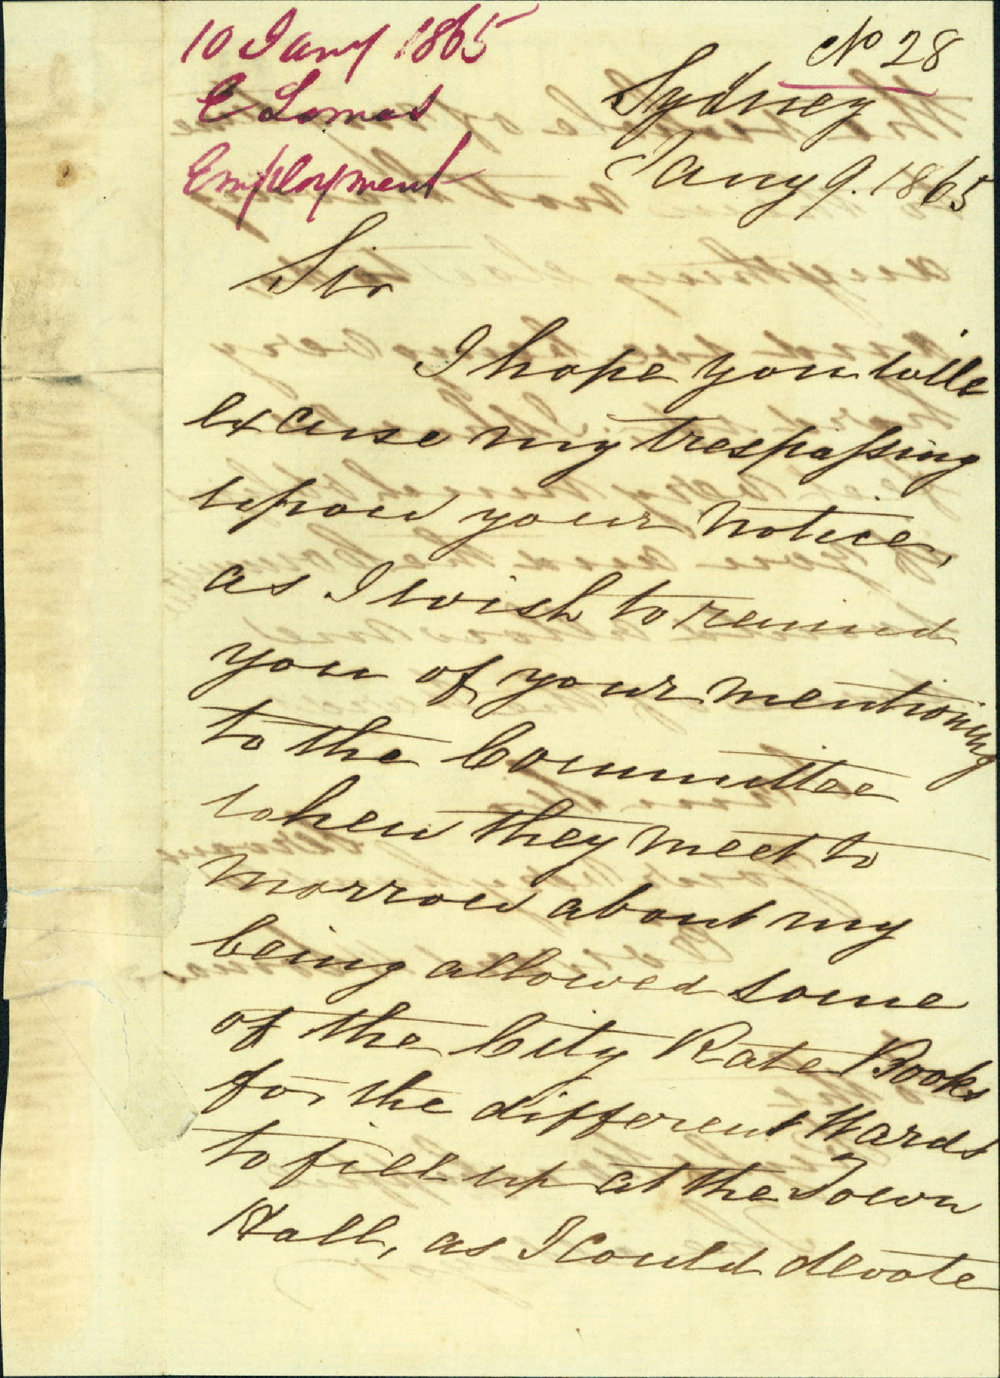 10 Jany 1865
C Lomas
Employment
No 28
Sydney
Jany 9. 1865
Sir
I hope you will
excuse my trespassing
upon your notice,
as I wish to remind
you of your mentioning
to the Committee
when they meet to
morrow about my
being allowed some
of the City Rate Books
for the different Wards
to fill up at the Town
Hall, as I could devote